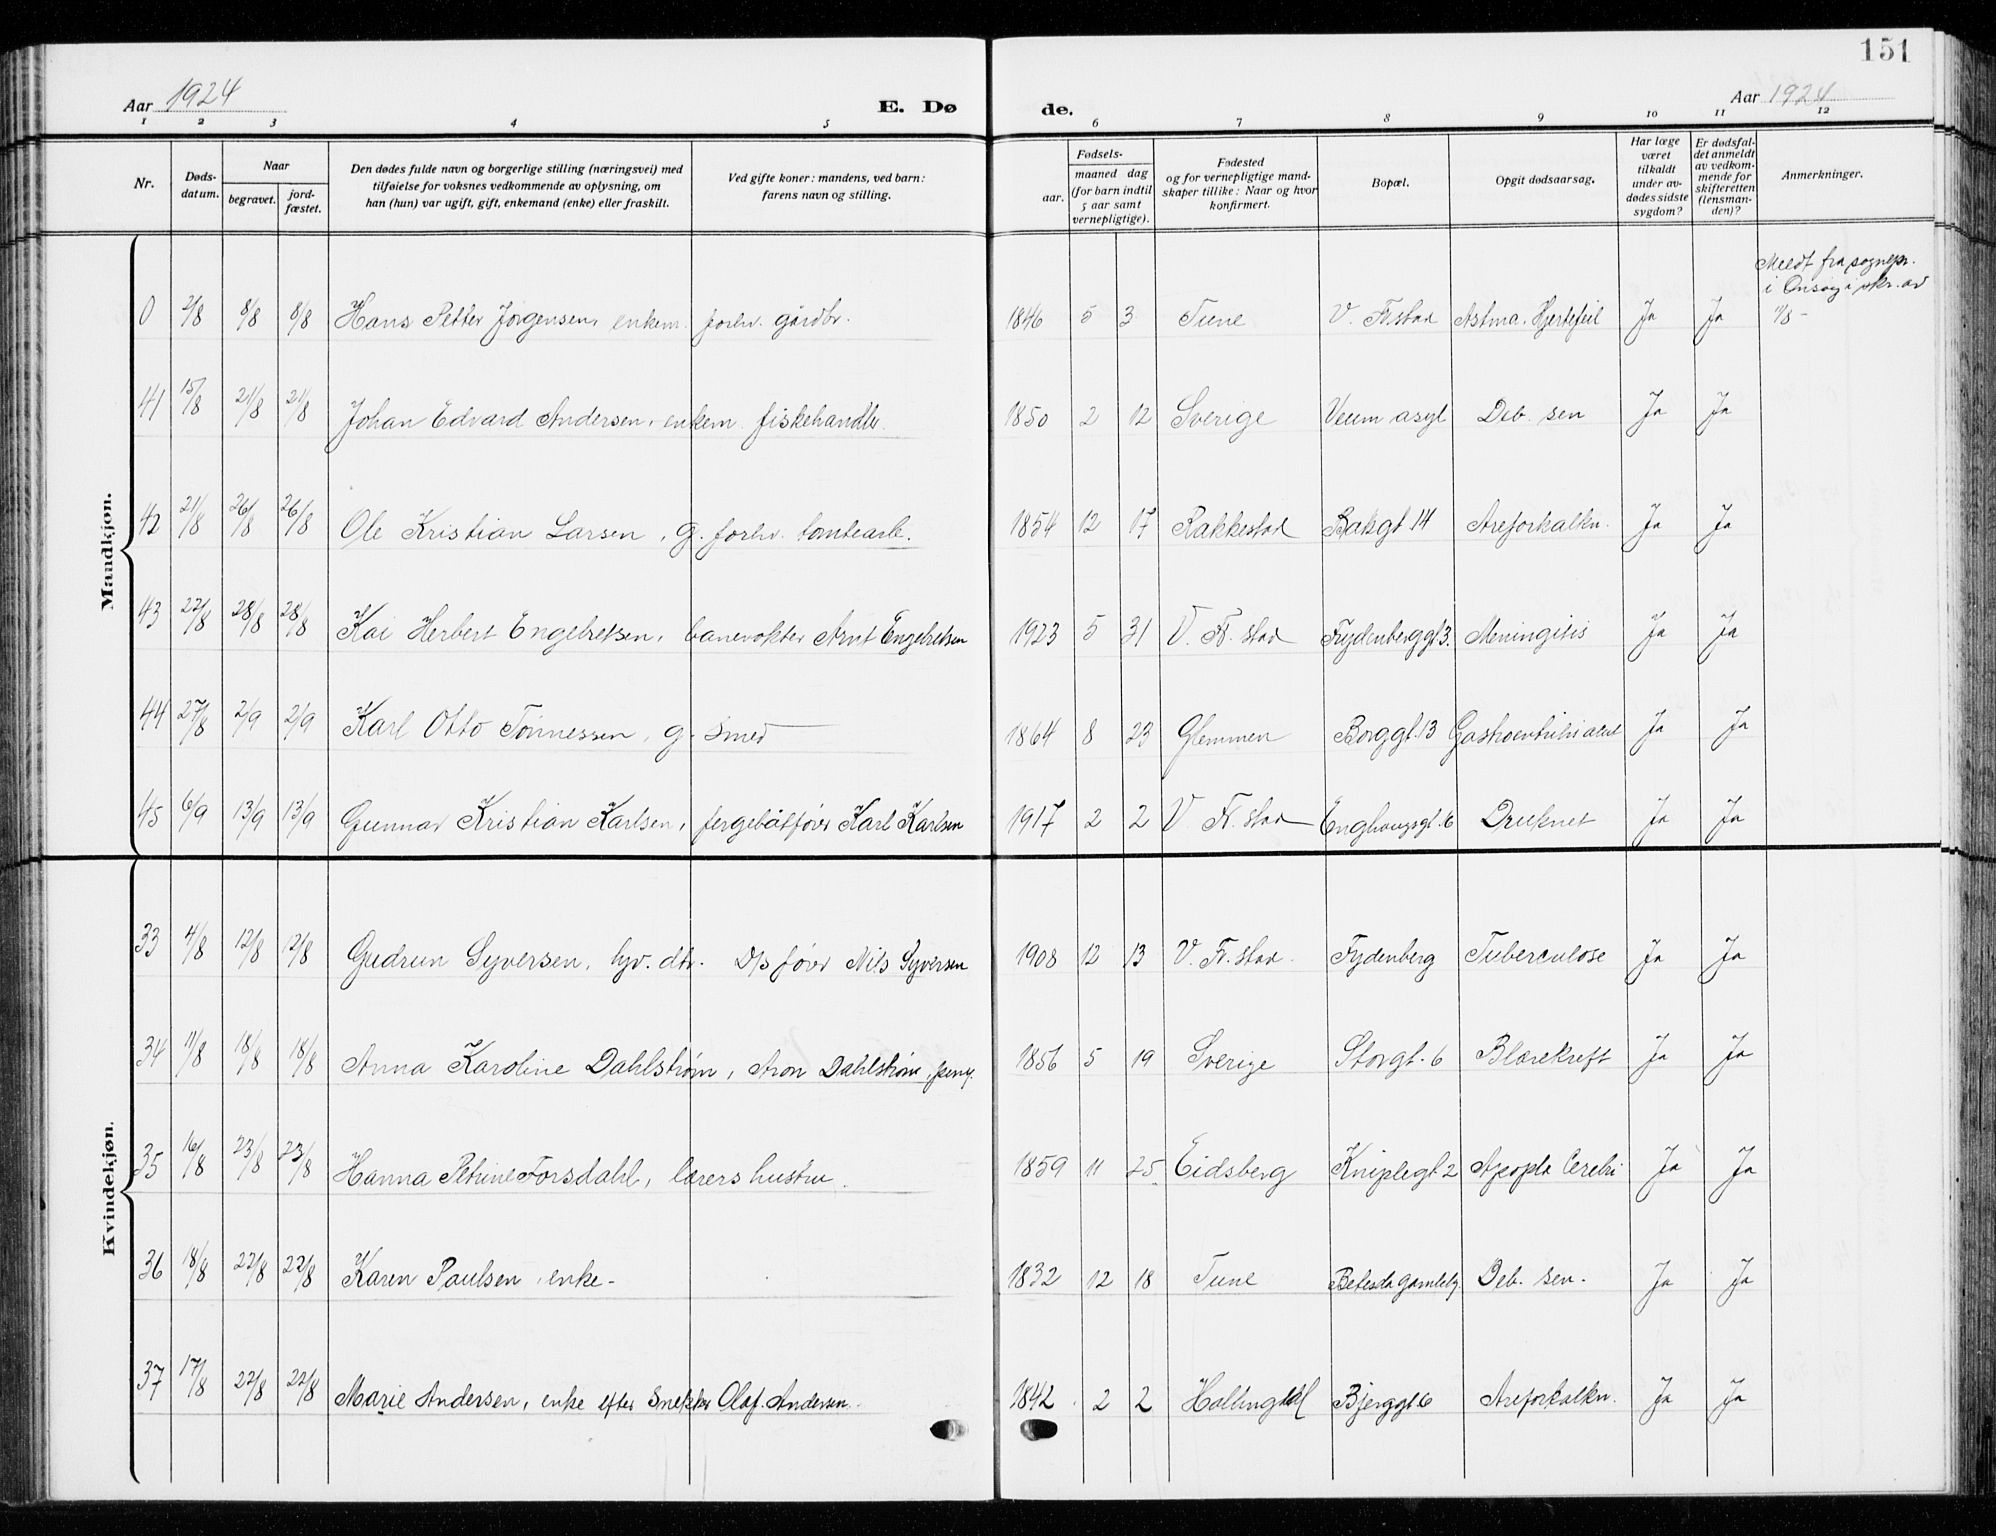 151
Aar 1924
E. Dø
de.
Aar 1924
1 2 3 4 5 6 7 8 9 10 11 12
Nr.
Døds-
datum.
Naar
begravet.
jord-
fæstet.
Den dødes fulde navn og borgerlige stilling (næringsvei) med
tilføielse for voksnes vedkommende av oplysning, om
han (hun) var ugift, gift, enkemand (enke) eller fraskilt.
Ved gifte koner: mandens, ved barn:
farens navn og stilling.
Fødsels-
aar.
maaned dag
(for barn indtil
5 aar samt
vernepligtige).
Fødested
og for vernepligtige mand-
skaper tillike: Naar og hvor
konfirmert.
Bopæl.
Opgit dødsaarsag.
Har læge
været
tilkaldt
under av-
dødes sidste
sygdom?
Er dødsfal-
det anmeldt
av vedkom-
mende for
skifteretten
(lensman-
den)?
Anmerkninger.
Mandkjøn.
Meldt fra sognepr.
i Onsøy i skr. av
11/8 -
0 2/8 8/8 8/8 Hans Petter Jørgensen, enkem. forhv. gårdbr. 1846 5 3 Tune V. Fr.stad Astma. Hjertefeil Ja Ja
41 15/8 21/8 21/8 Johan Edvard Andersen, enkem. fiskehandler. 1850 2 12 Sverige Veum asyl Deb. sen Ja Ja
42 21/8 26/8 26/8 Ole Kristian Larsen, g. forhv. tomtearb. 1854 12 17 Rakkestad Bakgt 14 Areforkalkn. Ja Ja
43 22/8 28/8 28/8 Kai Herbert Engebretsen, banevokter Arnt Engebretsen 1923 5 31 V. Fr. stad Frydenberggt 3. Meningitis Ja Ja
44 27/8 2/9 2/9 Karl Otto Tønnessen, g. smed 1864 8 23 Glemmen Borggt. 13 Ja Ja
45 6/9 13/9 13/9 Gunnar Kristian Karlsen, fergebåtfører Karl Karlsen 1917 2 2 V. Fr. stad Enghaugsgt. 6 Druknet Ja Ja
Kvindekjøn.
33 4/8 12/8 12/8 Gudrun Syversen, hjv. dtr. D/s fører Nils Syversen 1908 12 13 V. Fr. stad. Frydenberg Tuberculose Ja Ja
34 11/8 18/8 18/8 Anna Karoline Dahlstrøm, Aron Dahlstrøm, 1856 5 19 Sverige Storgt. 6 Blærekreft Ja Ja
35 16/8 23/8 23/8 Hanna Petrine Forsdahl, lærers hustru. 1859 11 25. Eidsberg Kniplegt 2 Apopla Cerebri Ja Ja
36 18/8 22/8 22/8 Karen Paulsen, enke - 1832 12 18 Tune Betesda gamleby. Deb. sen. Ja Ja
37 17/8 22/8 22/8 Marie Andersen, enke efter Snekker Olaf Andersen. 1842 2 2 Hallingdal Bjerggt 6 Areforkalkn. Ja Ja